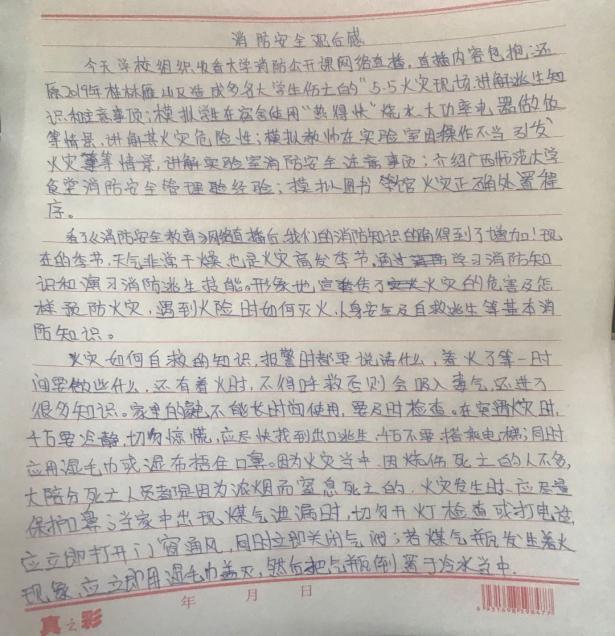 消防安全观后感
今天学校组织收看大学消防公开课网络直播,直播内容包抱:还
原2019年桂林雁山区造成多名大学生伤亡的"5·5火灾现场,讲解逃生知
识和注意事项;模拟学生在宿舍使用"热得快"烧水、大功率电器做饭
等情景,讲解其火灾危险性;模拟教师在实验室因操作不当引发
火灾等情景,讲解实验室消防安全注意事项;介绍广西师范大学
食堂消防安全管理经验;模拟图书馆火灾正确处置程
序。
看了《消防安全教育》网络直播后,我们的消防知识的确得到了增加!现
在的季节,天气非常干燥也是火灾高发季节,通过学习消防知
识和演习消防逃生技能。形象地,宣传了火灾的危害及怎
样预防火灾,遇到火险时如何灭火、人身安全及自救逃生等基本消
防知识。
火灾如何自救的知识,报警时都要说清什么,着火了第一时
间要做些什么,还有着火时,不得呼救否则会吸入毒气,还进了
很多知识。家里的键不能长时间使用,要及时检查。在突遇火灾时,
千万要冷静,切勿惊慌,应尽快找到出口逃生,千万不要搭乘电梯;同时
应用湿毛巾或湿布捂住口鼻。因为火灾当中,因烧伤死亡的人不多,
大陪分死亡人员都是因为浓烟而窒息死亡的,火灾发生时,应尽量
保护口鼻;当家中出现煤气泄漏时,切勿开灯检查或打电话,
应立即打开门窗通风,同时立即关闭气阀;若煤气瓶发生着火
现象,应立即用湿毛巾盖灭,然后把气瓶倒置于冷水当中.
真之彩 年 月 日